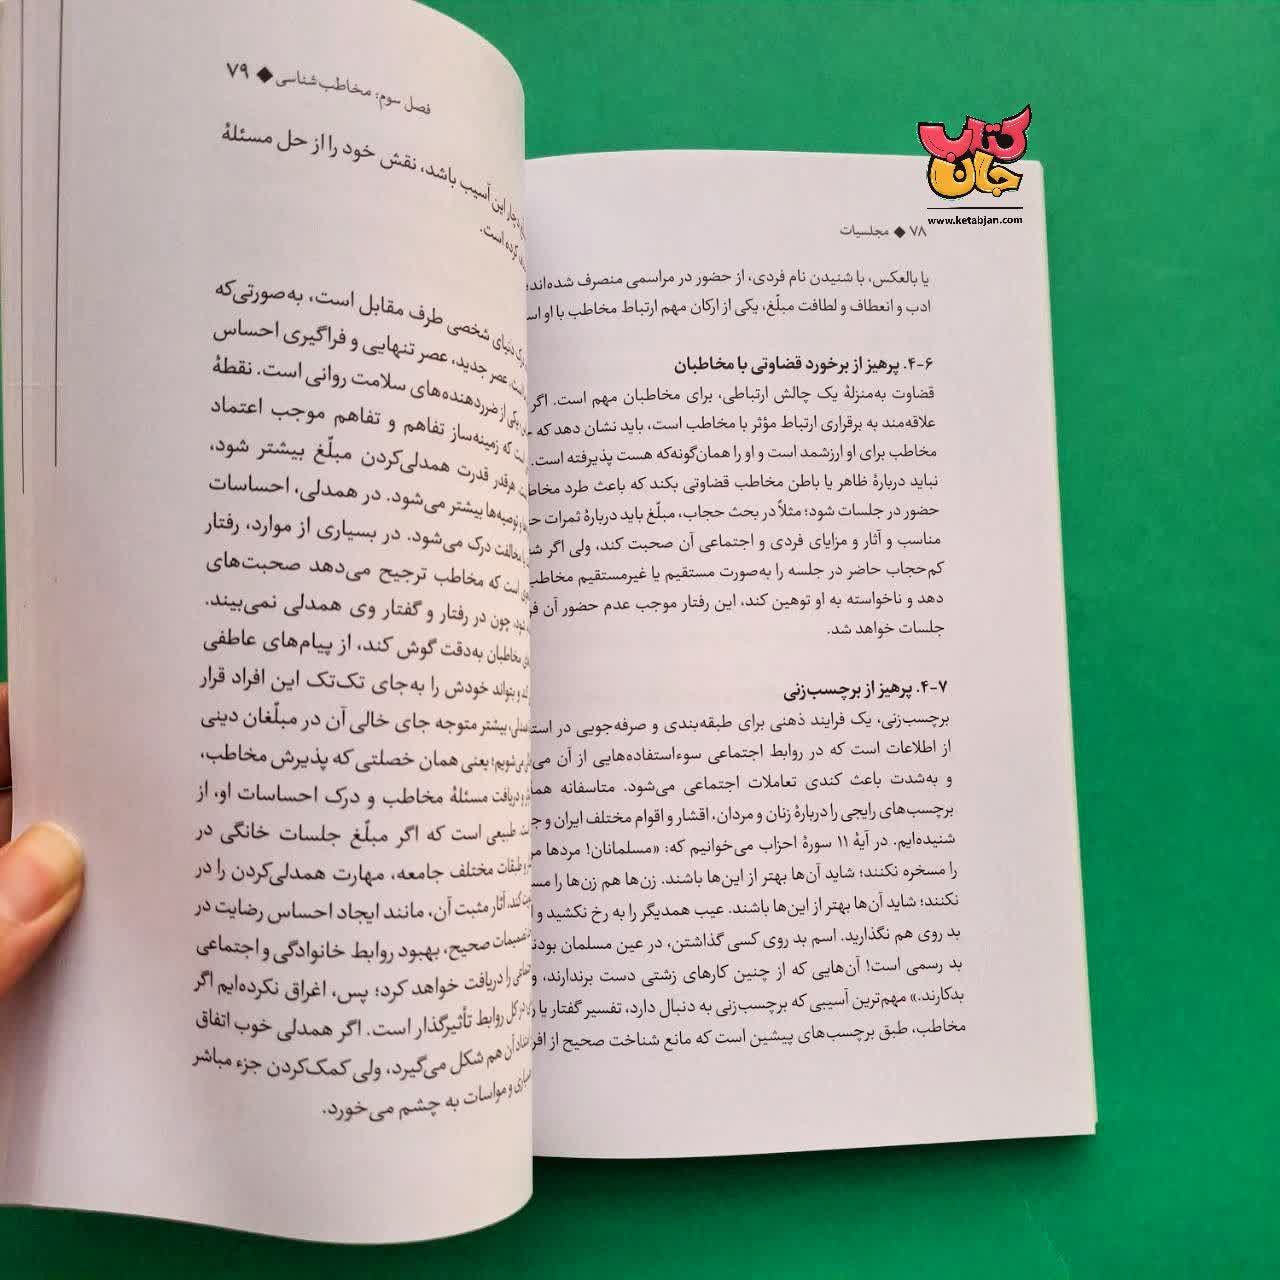 کتاب جان
www.ketabjan.com
۷۸ ◆ مجلسیات
یا بالعکس، با شنیدن نام فردی، از حضور در مراسمی منصرف شده‌اند؛
ادب و انعطاف و لطافت مبلّغ، یکی از ارکان مهم ارتباط مخاطب با او
۴-۶. پرهیز از برخورد قضاوتی با مخاطبان
قضاوت به‌منزلهٔ یک چالش ارتباطی، برای مخاطبان مهم است. اگر
علاقه‌مند به برقراری ارتباط مؤثر با مخاطب است، باید نشان دهد که
مخاطب برای او ارزشمند است و او را همان‌گونه‌که هست پذیرفته است.
نباید دربارهٔ ظاهر یا باطن مخاطب قضاوتی بکند که باعث طرد
حضور در جلسات شود؛ مثلاً در بحث حجاب، مبلّغ باید دربارهٔ ثمرات
مناسب و آثار و مزایای فردی و اجتماعی آن صحبت کند، ولی اگر
کم‌حجاب حاضر در جلسه را به‌صورت مستقیم یا غیرمستقیم مخاطب
دهد و ناخواسته به او توهین کند، این رفتار موجب عدم حضور آن
جلسات خواهد شد.
۴-۷. پرهیز از برچسب‌زنی
برچسب‌زنی، یک فرایند ذهنی برای طبقه‌بندی و صرفه‌جویی در
از اطلاعات است که در روابط اجتماعی سوءاستفاده‌هایی از آن
و به‌شدت باعث کندی تعاملات اجتماعی می‌شود. متاسفانه
برچسب‌های رایجی را دربارهٔ زنان و مردان، اقشار و اقوام مختلف ایران و
شنیده‌ایم. در آیهٔ ۱۱ سورهٔ احزاب می‌خوانیم که: «مسلمانان! مردها
را مسخره نکنند؛ شاید آن‌ها بهتر از این‌ها باشند. زن‌ها هم زن‌ها را
نکنند؛ شاید آن‌ها بهتر از این‌ها باشند. عیب همدیگر را به رخ نکشید و
بد روی هم نگذارید. اسم بد روی کسی گذاشتن، در عین مسلمان
بد رسمی است! آن‌هایی که از چنین کارهای زشتی دست برندارند،
بدکارند.» مهم‌ترین آسیبی که برچسب‌زنی به دنبال دارد، تفسیر گفتار یا
مخاطب، طبق برچسب‌های پیشین است که مانع شناخت صحیح از
فصل سوم: مخاطب‌شناسی ◆ ۷۹
دچار این آسیب باشد، نقش خود را از حل مسئلهٔ
کرده است.
دنیای شخصی طرف مقابل است، به‌صورتی‌که
عصر جدید، عصر تنهایی و فراگیری احساس
یکی از ضرردهنده‌های سلامت روانی است. نقطهٔ
که زمینه‌ساز تفاهم و تفاهم موجب اعتماد
هرقدر قدرت همدلی‌کردن مبلّغ بیشتر شود،
توصیه‌ها بیشتر می‌شود. در همدلی، احساسات
مخالفت درک می‌شود. در بسیاری از موارد، رفتار
است که مخاطب ترجیح می‌دهد صحبت‌های
چون در رفتار و گفتار وی همدلی نمی‌بیند.
مخاطبان به‌دقت گوش کند، از پیام‌های عاطفی
و بتواند خودش را به‌جای تک‌تک این افراد قرار
بیشتر متوجه جای خالی آن در مبلّغان دینی
می‌شویم؛ یعنی همان خصلتی که پذیرش مخاطب،
و دریافت مسئلهٔ مخاطب و درک احساسات او، از
طبیعی است که اگر مبلّغ جلسات خانگی در
و طبقات مختلف جامعه، مهارت همدلی‌کردن را در
کند، آثار مثبت آن، مانند ایجاد احساس رضایت در
تصمیمات صحیح، بهبود روابط خانوادگی و اجتماعی
را دریافت خواهد کرد؛ پس، اغراق نکرده‌ایم اگر
در کل روابط تأثیرگذار است. اگر همدلی خوب اتفاق
آن هم شکل می‌گیرد، ولی کمک‌کردن جزء مباشر
و مواسات به چشم می‌خورد.